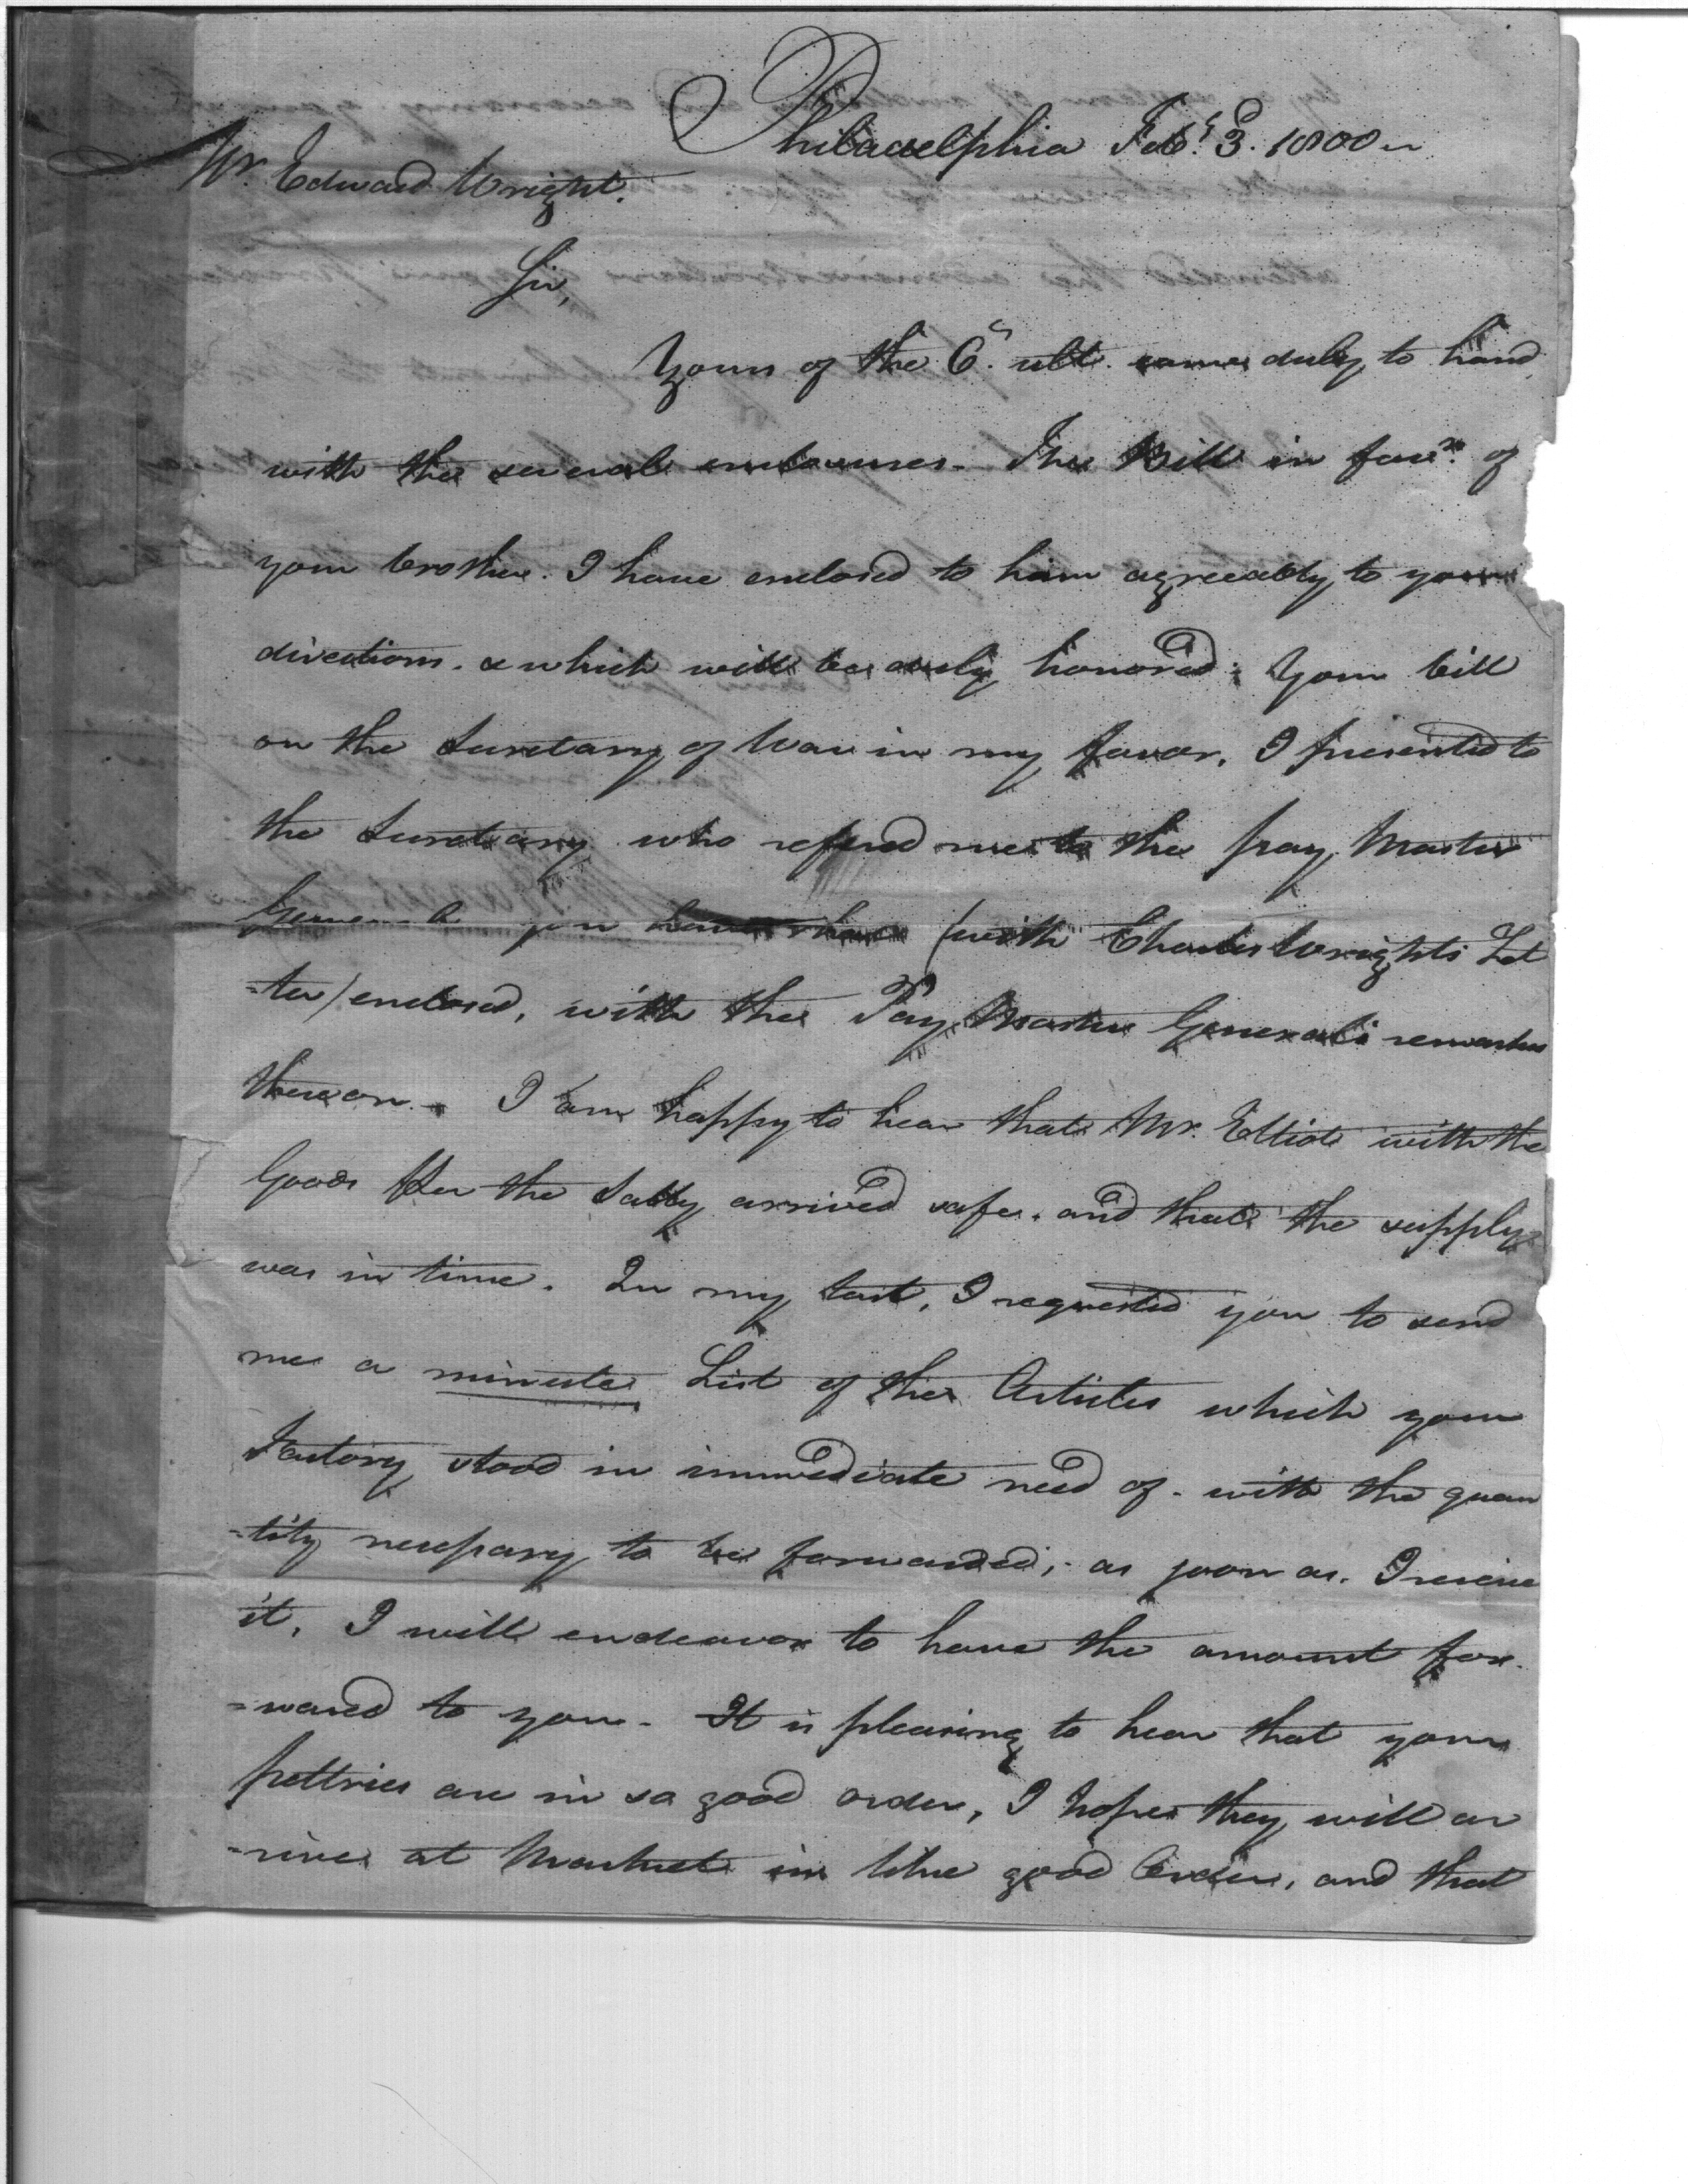 Philadelphia Feby. 3d. 1800
Mr. Edward Wright.
Sir,
Yours of the 6th. ult. came duly to hand
with the several enclosures. The Bill in favr. of
your brother. I have enclosed to him agreeably to your
directions. & which will be duly honored; Your bill
on the Secretary of War in my favor, I presented to
the Secretary who refered me to the pay Master
General you have here (with Charles Wrights Let
-ter) enclosed, with the Pay Master General's remarks
thereon. I am happy to hear that Mr. Elliot with the
Goods Per the Sally arrived safe. and that the supply
was in time. In my last, I requested you to send
me a minute List of the Articles which your
Factory stood in immediate need of. with the quan
-tity necessary to be forwarded; as soon as. I receive
it, I will endeavor to have the amount for
-wared to you. It is pleasing to hear that your
peltries are in so good order, I hope they will ar
-rive at Market in like good Order, and that